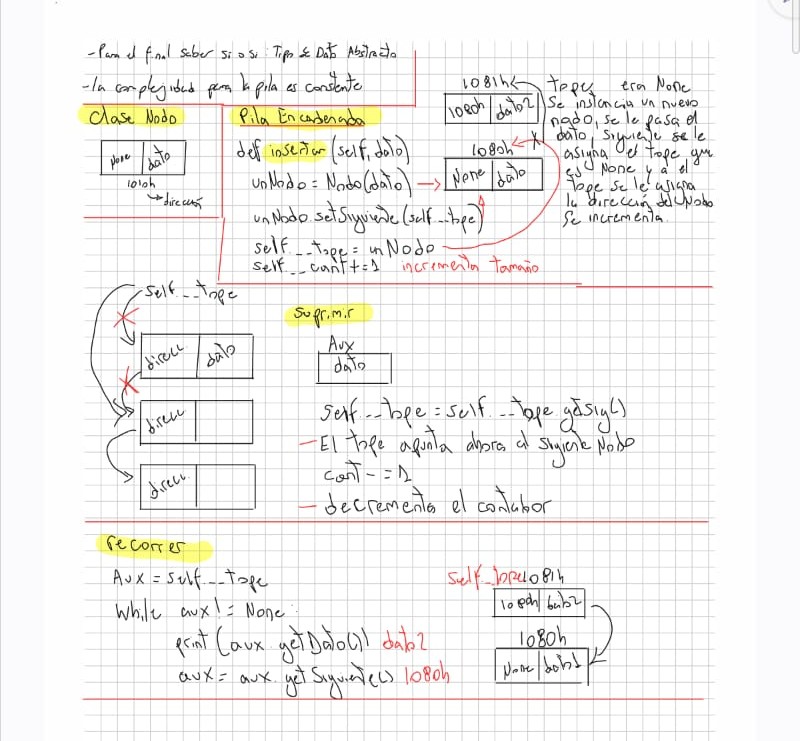 - Para el final saber si o si: Tipo de Dato Abstracto
- la complejidad para la pila es constante
Clase Nodo
None | dato
1010h
direcció
Pila Encadenada
def insertar (self, dato)
unNodo = Nodo(dato)
unNodo.setSiguiente(self.__tope)
self.__tope = unNodo
self.__cant+=1 incrementa tamaño
1081h
1080h | dato2
1080h
None | dato
Tope, era None
Se instancia un nuevo
nodo, se le pasa el
dato, siguiente se le
asigna el tope que
es None y a el
Tope se le asigna
la dirección del Nodo
Se incrementa.
self.__tope
direcc | dato
direcc
direcc.
Suprimir
Aux
dato
self.__tope = self.__tope.getSig()
- El tope apunta ahora al siguiente Nodo
cont -= 1
- decrementa el contador
recorrer
Aux = self.__tope
While aux != None:
print (aux.getDato()) dato2
aux = aux.getSiguiente() 1080h
self__tope 1081h
1080h | dato2
1080h
None | dato1